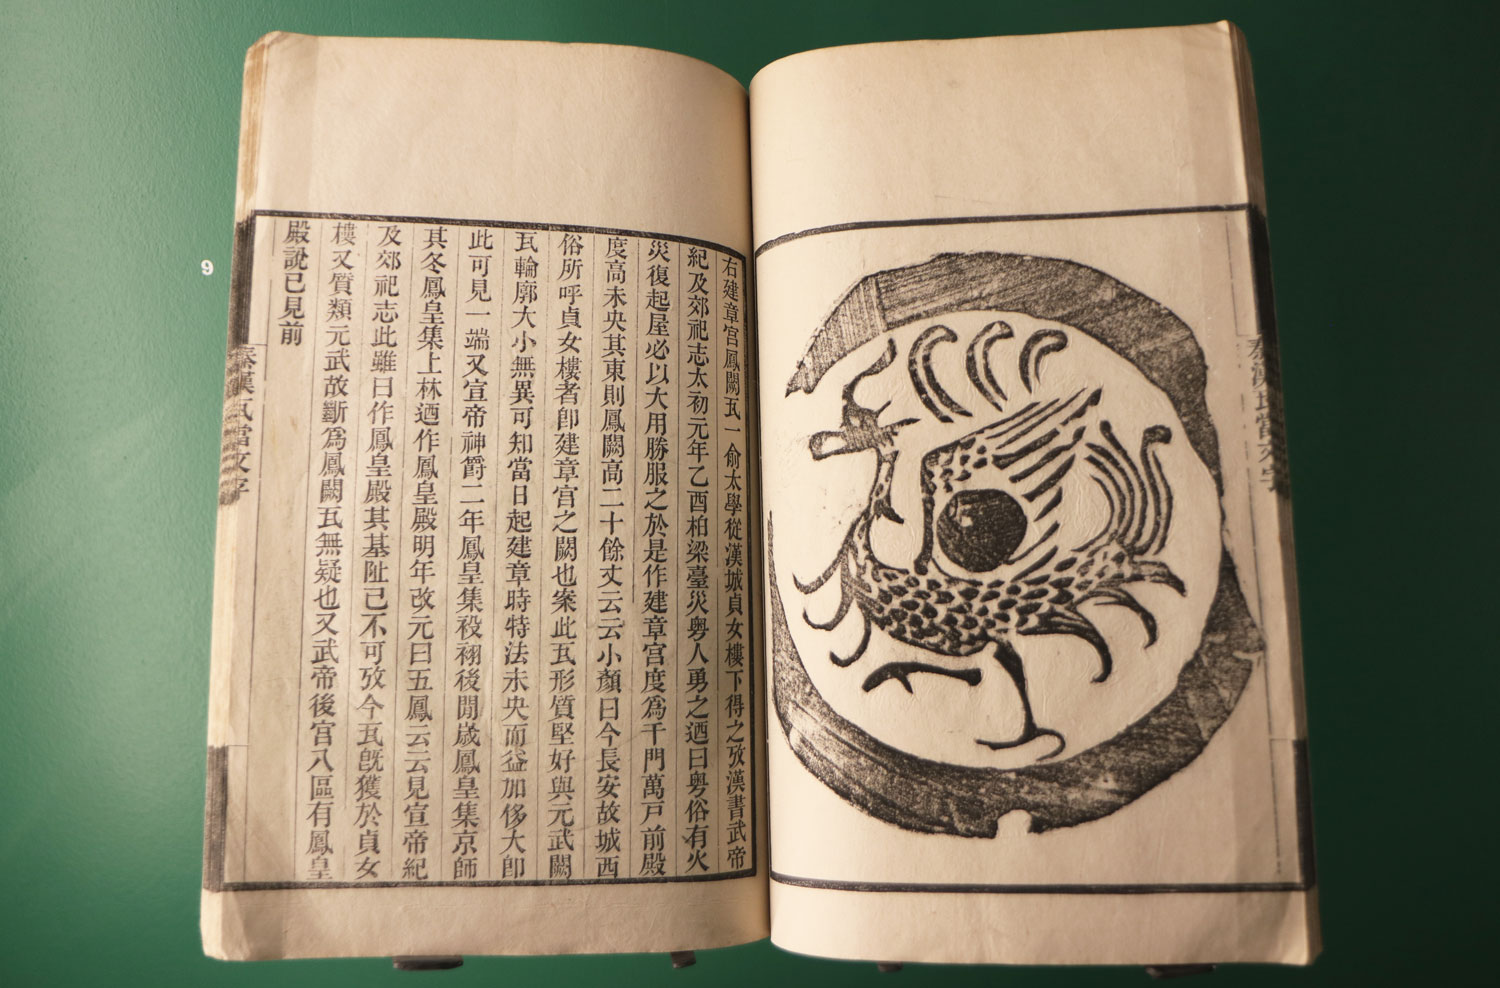 右建章宮鳳闕瓦一俞太學從漢城貞女樓下得之攷漢書武帝
紀及郊祀志太初元年乙酉柏梁臺災粵人勇之迺曰粵俗有火
災復起屋必以大用勝服之於是作建章宮度爲千門萬戸前殿
度高未央其東則鳳闕高二十餘丈云云小顏曰今長安故城西
俗所呼貞女樓者卽建章宮之闕也案此瓦形質堅好與元武闕
瓦輪廓大小無異可知當日起建章時特法未央而益加侈大卽
此可見一端又宣帝神爵二年鳳皇集祋祤後閒歲鳳皇集京師
其冬鳳皇集上林迺作鳳皇殿明年改元曰五鳳云云見宣帝紀
及郊祀志此雖曰作鳳皇殿其基阯已不可攷今瓦旣獲於貞女
樓又質類元武故斷爲鳳闕瓦無疑也又武帝後宮八區有鳳皇
殿說已見前
秦漢瓦當文字
9